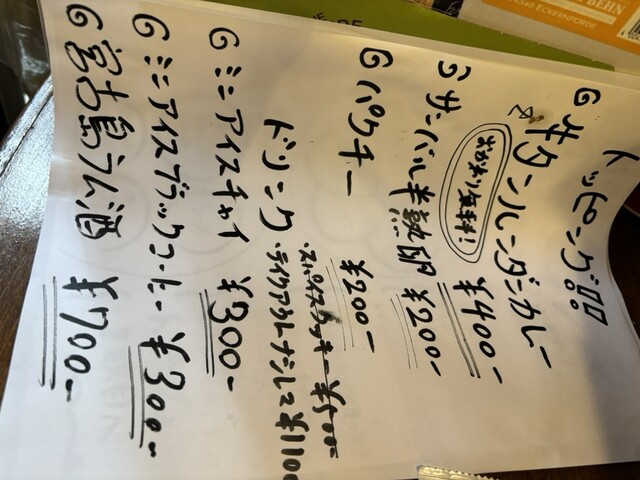 トッピング!!!
G キタンルンダンカレー ¥400-
おかわり無料!
G サンバル半熟卵 ¥200-
G パクチー ¥200-
ドリンク
・テイクアウトナシレマ ¥1100
G ミニアイスチャイ ¥300-
G ミニアイスブラックコーヒー ¥300-
G 宮古島ラム酒 ¥700-
ECKERNFÖRDE